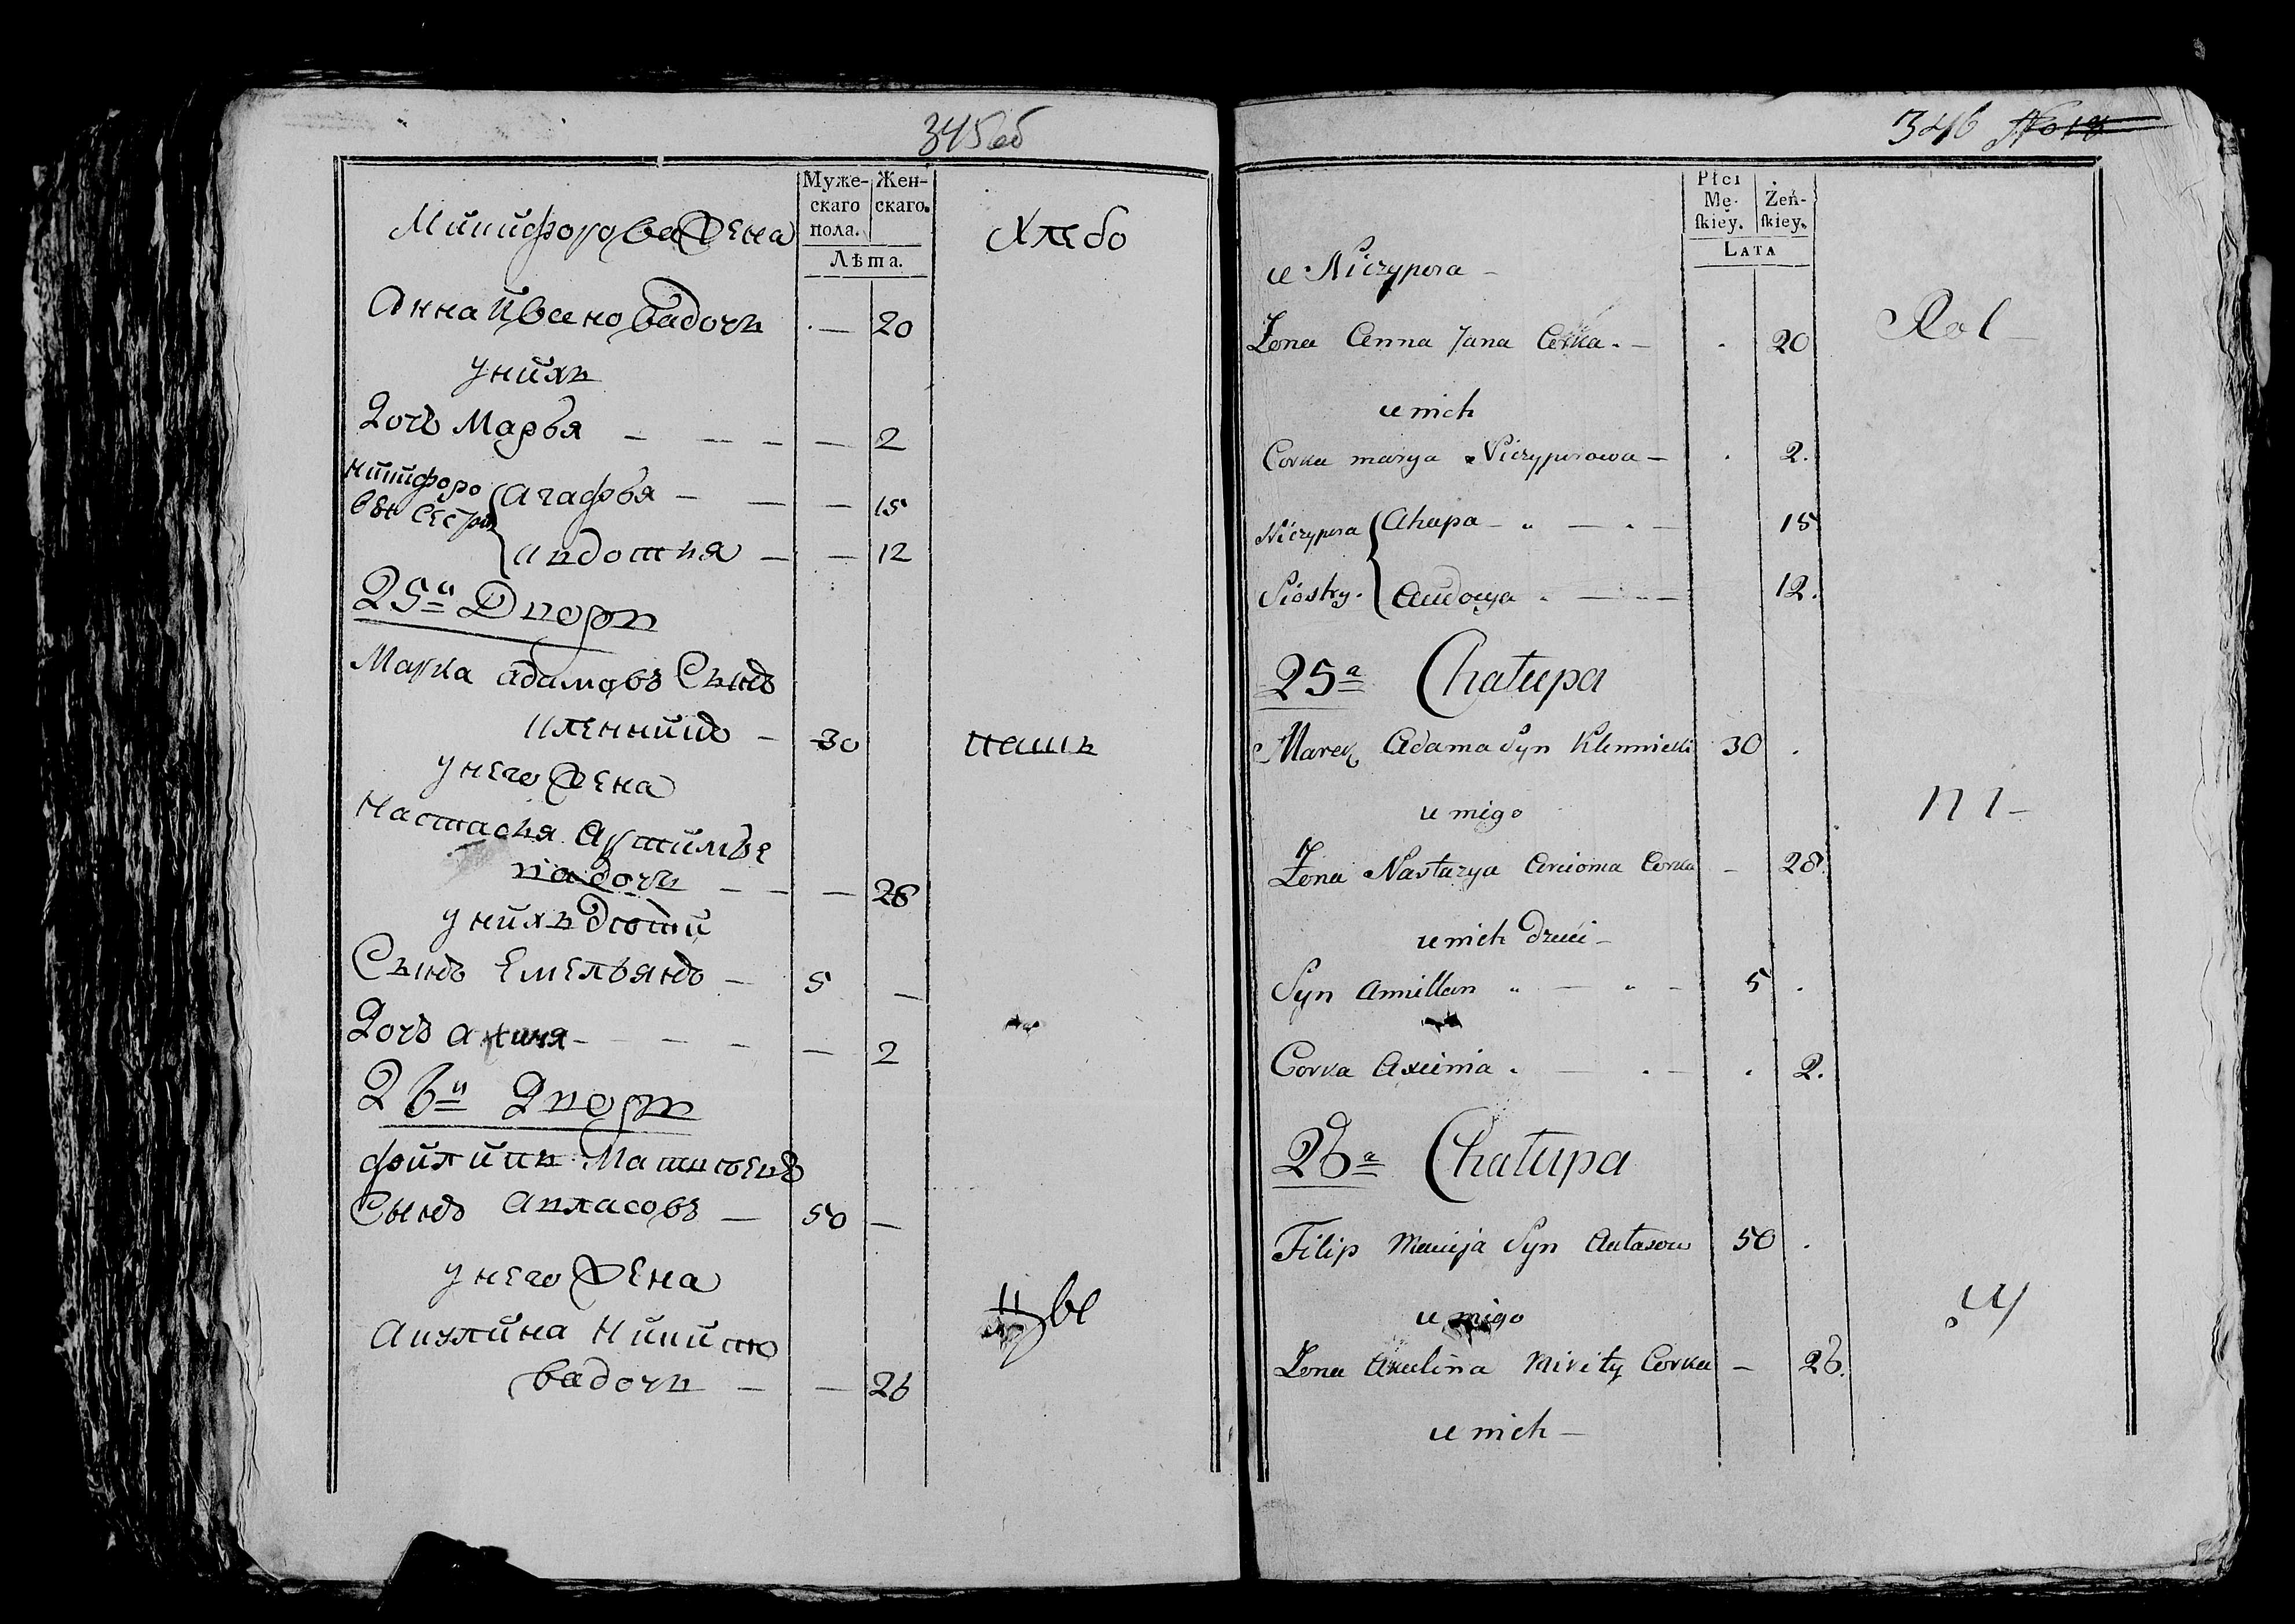 345 об
Муже-
скаго
пола.
Жен-
скаго.
Лѣта.
Никифорова Жена
Хлебо
Анна Иванова дочь - — 20
у нихъ
Дочь Марья — — — — 2
Никифоро
вы сестры
Агафья — — — 15
Авдотья — — 12
25й Дворъ
Марка Адамовъ Сынъ
— 30
пашъ
у него Жена
Настасья Артимье
ва дочь — — — 28
у нихъ Дѣти
Сынъ Емельянъ — 5 —
Дочь — — — — — 2
26й Дворъ
Филипъ Матвеевъ
Сынъ Авласовъ — 50 —
у него Жена
Акулина Никито
ва дочь — — 26
346
Płci
Mę-
skiey.
Żeń-
skiey.
LATA
u Niczypora —
Żona Anna Jana Corka. — . 20
Rol —
u nich
Corka marya Niczyporowa — . 2.
Niczypora
Siostry.
Ahapa — „ — . — 15
Audocya . — — 12.
25a Chałupa
Marek Adama Syn 30 .
u niego
Żona Nastazya Arcioma Corka — 28.
u nich Dzieci —
Syn Amillan „ — „ — 5 .
Corka Axinia . — . — . 2.
26a Chałupa
Filip Macieja Syn Autasow 50 .
u niego
Żona Akulina Nikity Corka — 26.
u nich —